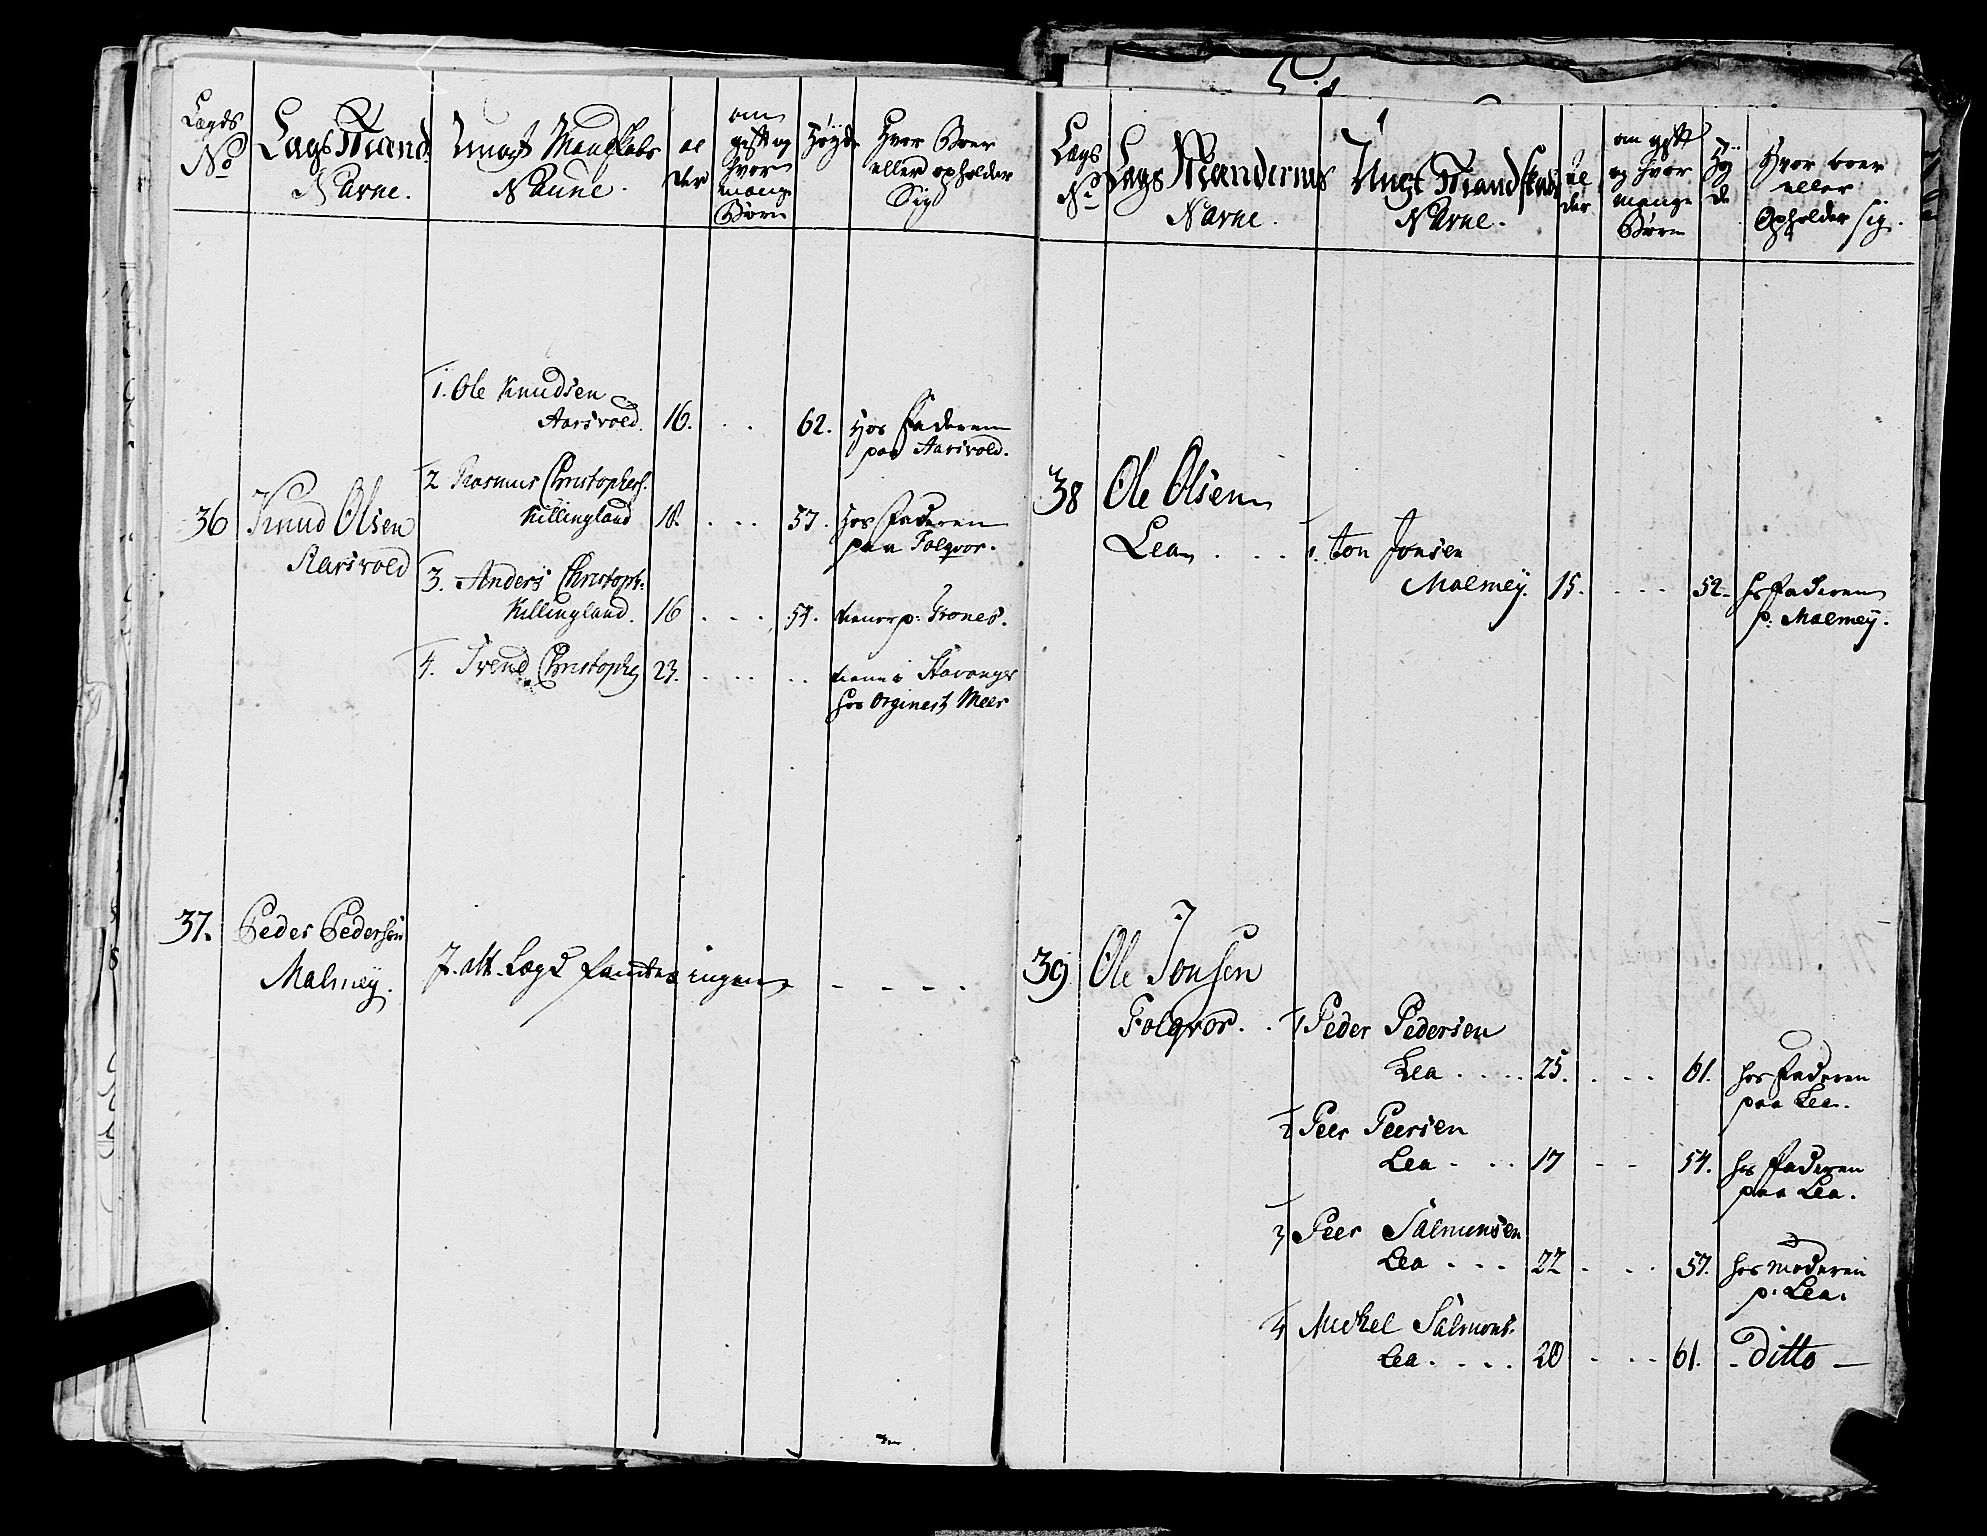 Lægds
No
Lægs Mænd
Navne.
Ungt Mandskabs
Naune.
al
der
om
gift og
hvor
mange
Børn
Høyde
Hvor Boer
eller opholder
Sig
1. Ole Knudsen
Aarsvold. 16. . . 62. Hos Faderen
paa Aarsvold.
2 Rasmus Christophers.
Killingland 18. . . . 57. Hos Faderen
paa Folqvor.
36 Knud Olsen
Aarsvold
3. Anders Christoph:
Killingland. 16 . . . 54. tiener p:
4. Svend Christophs 23. . . . . . tiener i Stavanger
hos Meer
37. Peder Pedersen
Malmey.
I. att. Lægd fandtes ingen - - - -
Lægs
No
Lægs Mændernes
Navne.
Ungt Mandskabs
Navne.
al
der
om gift
og hvor
mange
Børn
Høy
de
Hvor boer
eller
Opholder sig.
38 Ole Olsen
Lea . . . 1. Jon Jonsen
Malmey. 15. . . . 52. hos Faderen
p: Malmey.
39 Ole Jonsen
Folqvor. . 1 Peder Pedersen
Lea . . . . 25. . . . 61. hos Faderen
paa Lea.
2 Peer Peersen
Lea . . . 17 - - 54. hos Faderen
paa Lea.
3 Peer Salmunsen
Lea . . . 22 . . . 57. hos Moderen
p. Lea.
4 Mickel Salmons.
Lea . . . . 20 . . . 61. - Ditto —